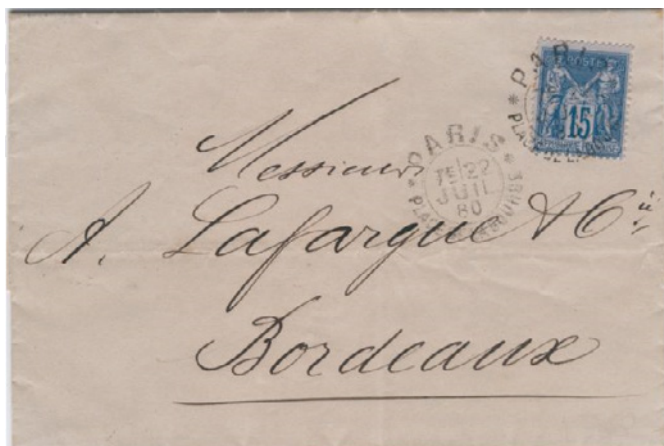 POSTE
15
PARIS
PARIS
7E 22
JUIL
80
PLACE DE LA BOURSE
Messieurs
A. Lafargue & Cie
Bordeaux